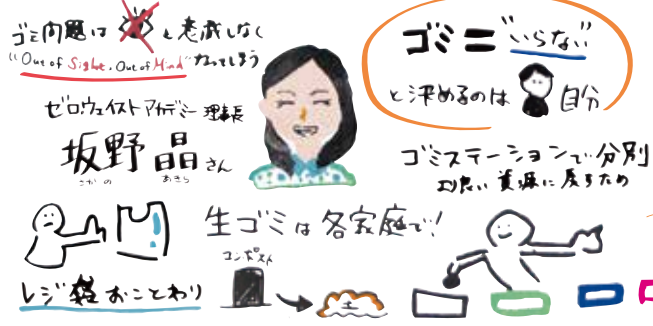 ゴミ問題は
と意識しなく
"Out of Sight. Out of Mind" なってしまう
ゼロ・ウェイストアカデミー 理事長
坂野 晶 さん
さかの あきら
ゴミ = "いらない"
と決めるのは 自分
ゴミステーションで分別
より良い資源に戻すため
生ゴミは各家庭で!
コンポスト
土
レジ袋おことわり